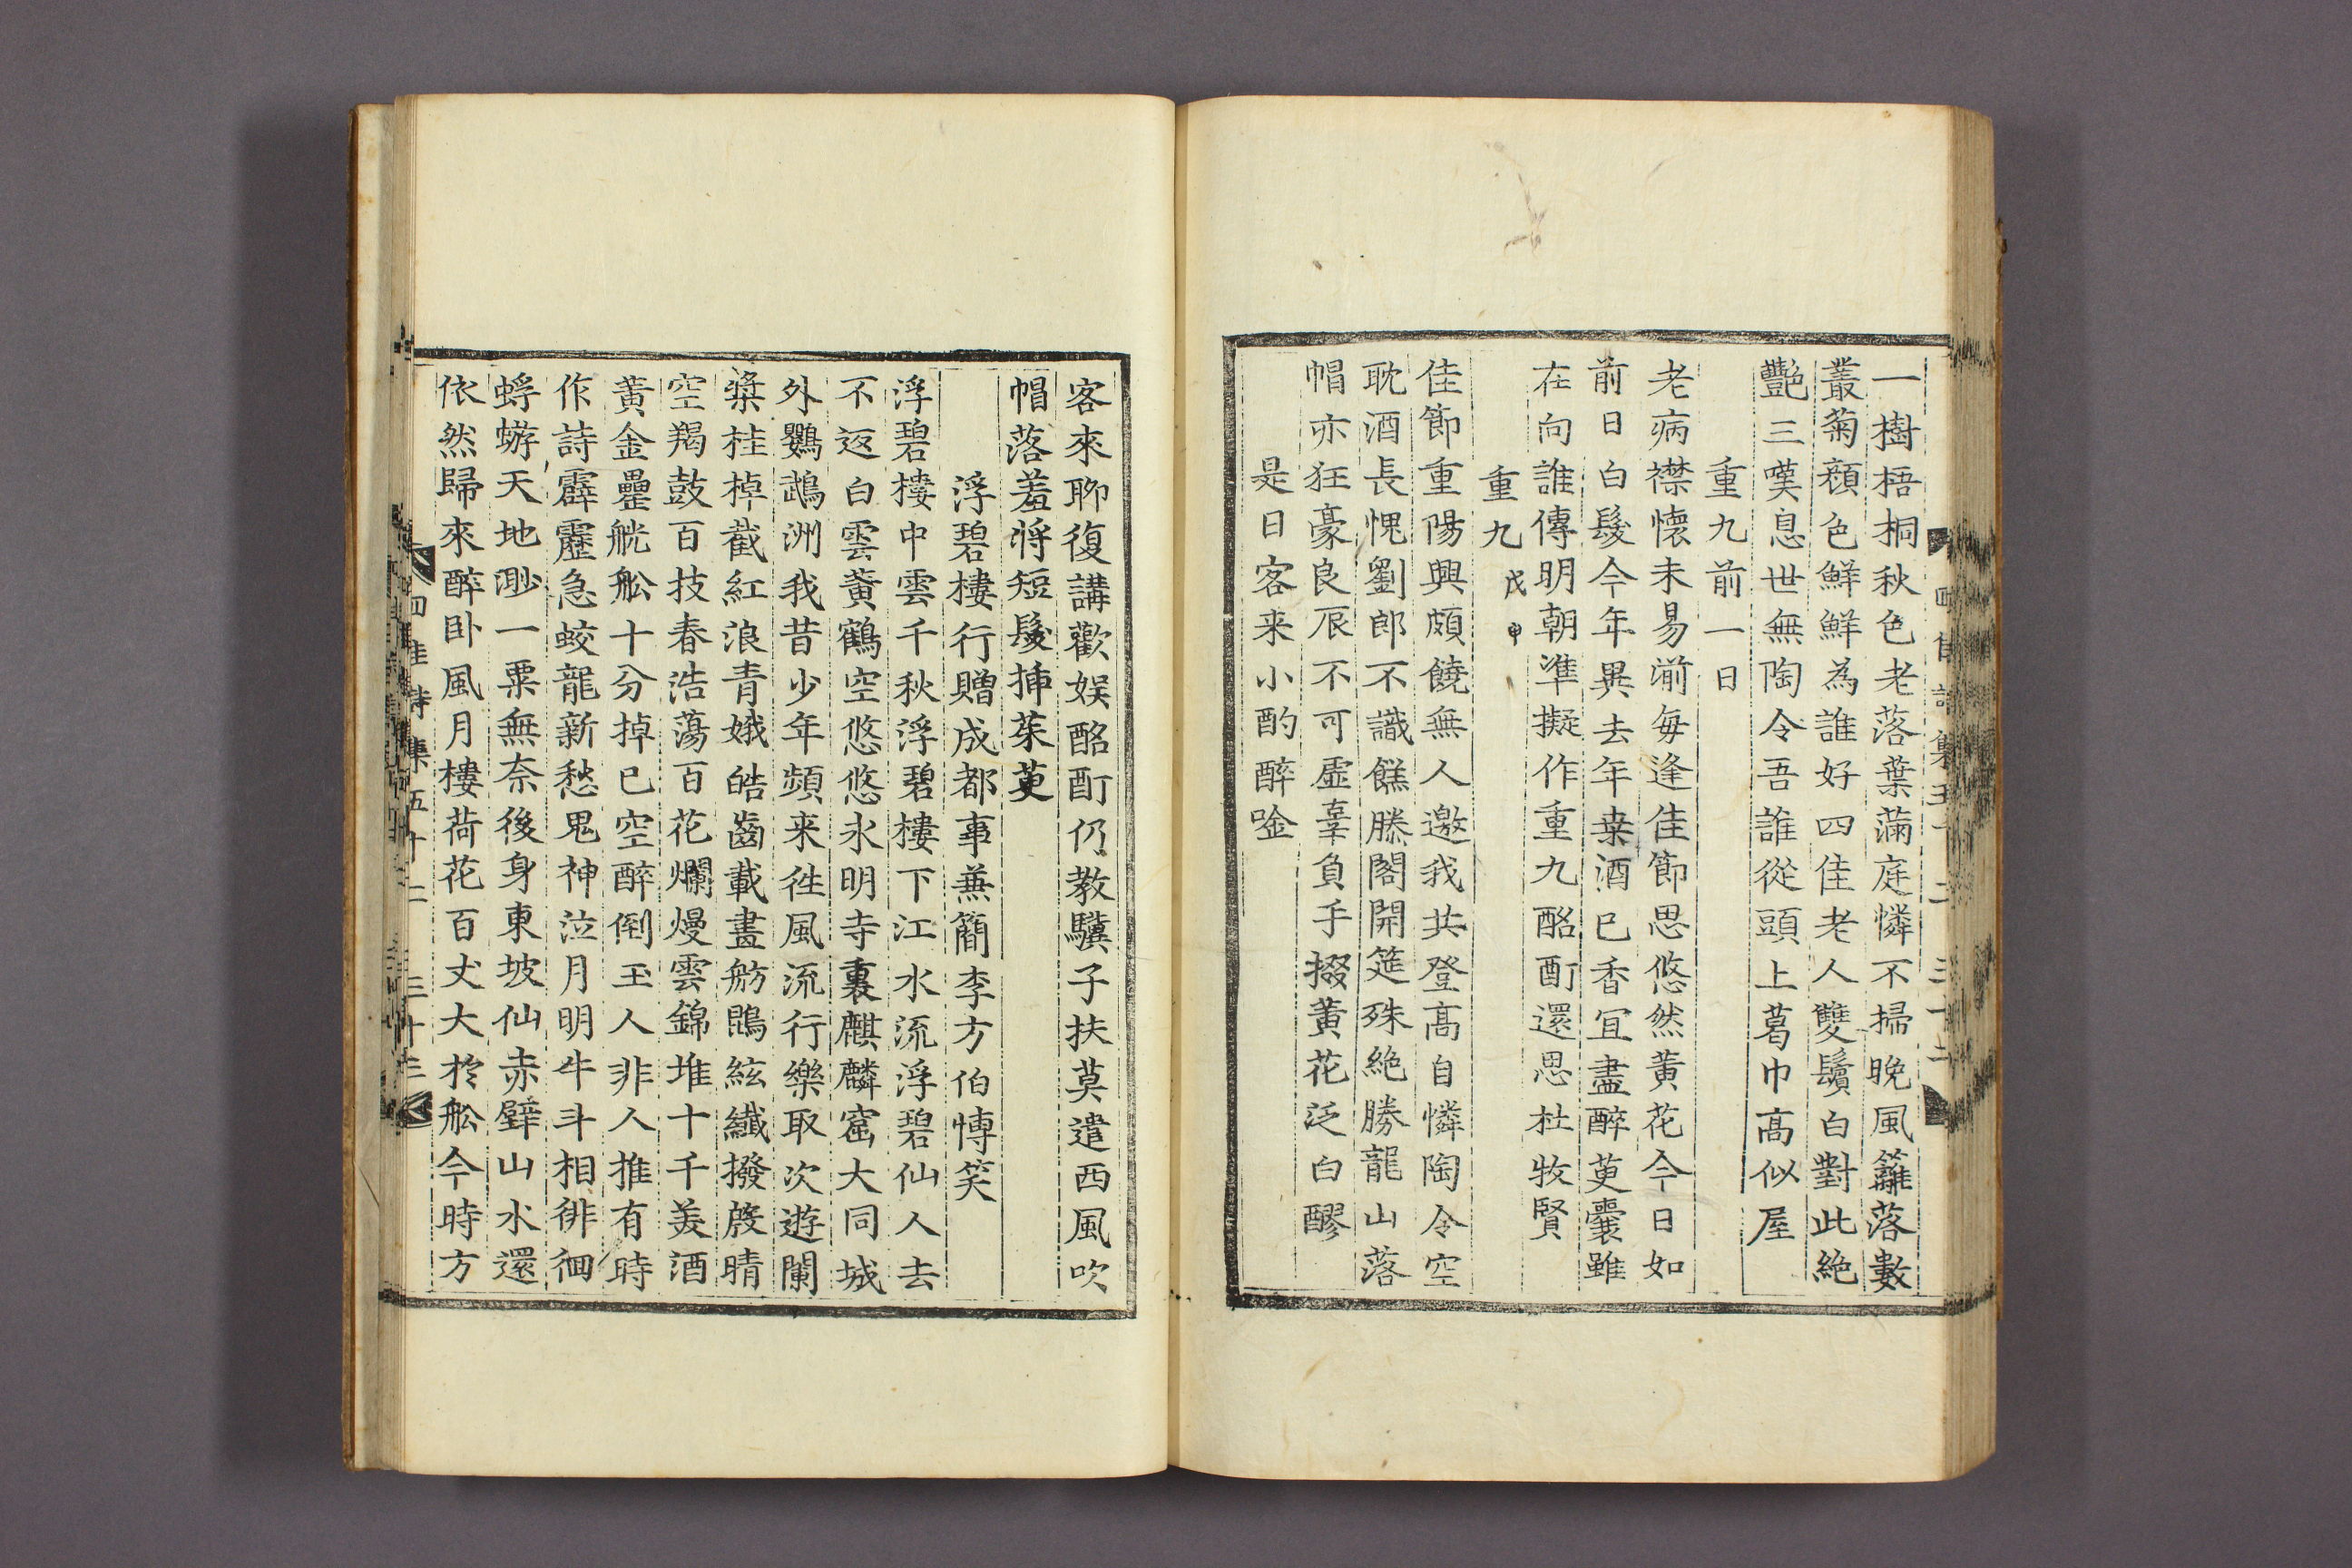 一樹梧桐秋色老落葉滿庭憐不掃晚風籬落數
叢菊顔色鮮鮮為誰好四佳老人雙鬢白對此絶
艶三嘆息世無陶令吾誰從頭上葛巾高似屋
重九前一日
老病襟懷未易湔每逢佳節思悠然黃花今日如
前日白髮今年異去年桒酒已香宜盡醉萸囊雖
在向誰傳明朝準擬作重九酩酊還思杜牧賢
重九 戊申
佳節重陽興頗饒無人邀我共登高自憐陶令空
耽酒長愧劉郎不識餻滕閣開筵殊絶勝龍山落
帽亦狂豪良辰不可虛辜負手掇黃花泛白醪
是日客来小酌醉唫
客來聊復講歡娛酩酊仍教驥子扶莫遣西風吹
帽落羞將短髮揷茱萸
浮碧樓行贈成都事兼簡李方伯愽笑
浮碧樓中雲千秋浮碧樓下江水流浮碧仙人去
不返白雲黃鶴空悠悠永明寺裏麒麟窟大同城
外鸚鵡洲我昔少年頻来徃風流行樂取次遊蘭
槳桂棹截紅浪青娥皓齒載畫舫鵾絃纖撥殷晴
空羯鼓百技春浩蕩百花爛熳雲錦堆十千美酒
黃金罍觥舩十分掉已空醉倒玉人非人推有時
作詩霹靂急蛟龍新愁鬼神泣月明牛斗相徘徊
蜉蝣天地渺一粟無奈後身東坡仙赤壁山水還
依然歸來醉卧風月樓荷花百丈大於舩今時方
四佳詩集五十二 三十三